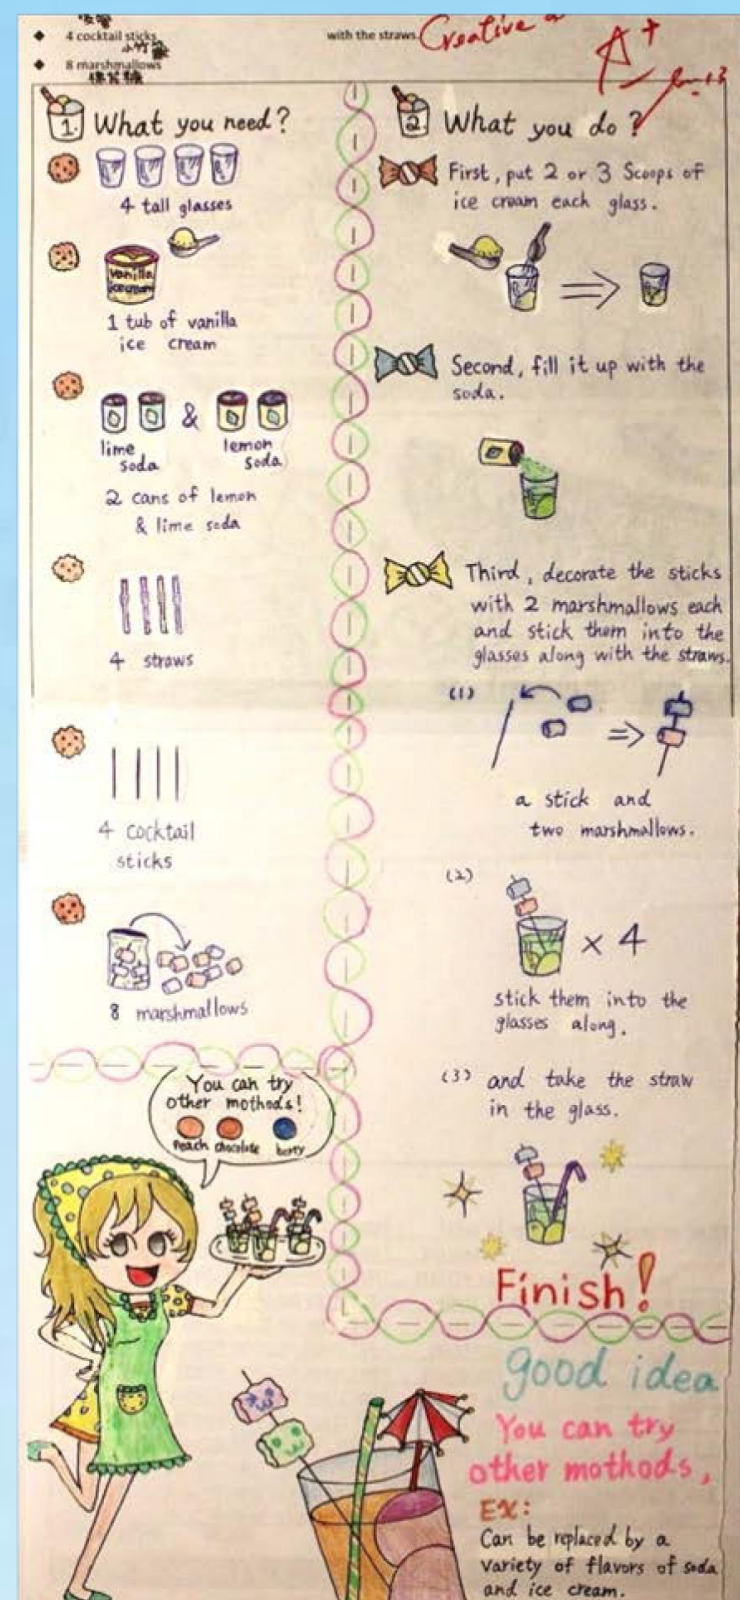 4 cocktail sticks
with the straws.
Creative
A+
8 marshmallows
棉花糖
1. What you need?
4 tall glasses
vanilla
ice cream
1 tub of vanilla
ice cream
&
lime
soda
lemon
soda
2 cans of lemon
& lime soda
4 straws
4 cocktail
sticks
8 marshmallows
You can try
other mothods!
Peach chocolate berry
2. What you do?
First, put 2 or 3 Scoops of
ice cream each glass.
Second, fill it up with the
soda.
Third, decorate the sticks
with 2 marshmallows each
and stick them into the
glasses along with the straws.
(1)
a stick and
two marshmallows.
(2)
x 4
stick them into the
glasses along.
(3) and take the straw
in the glass.
Finish!
good idea
You can try
other mothods,
EX:
Can be replaced by a
variety of flavors of soda
and ice cream.